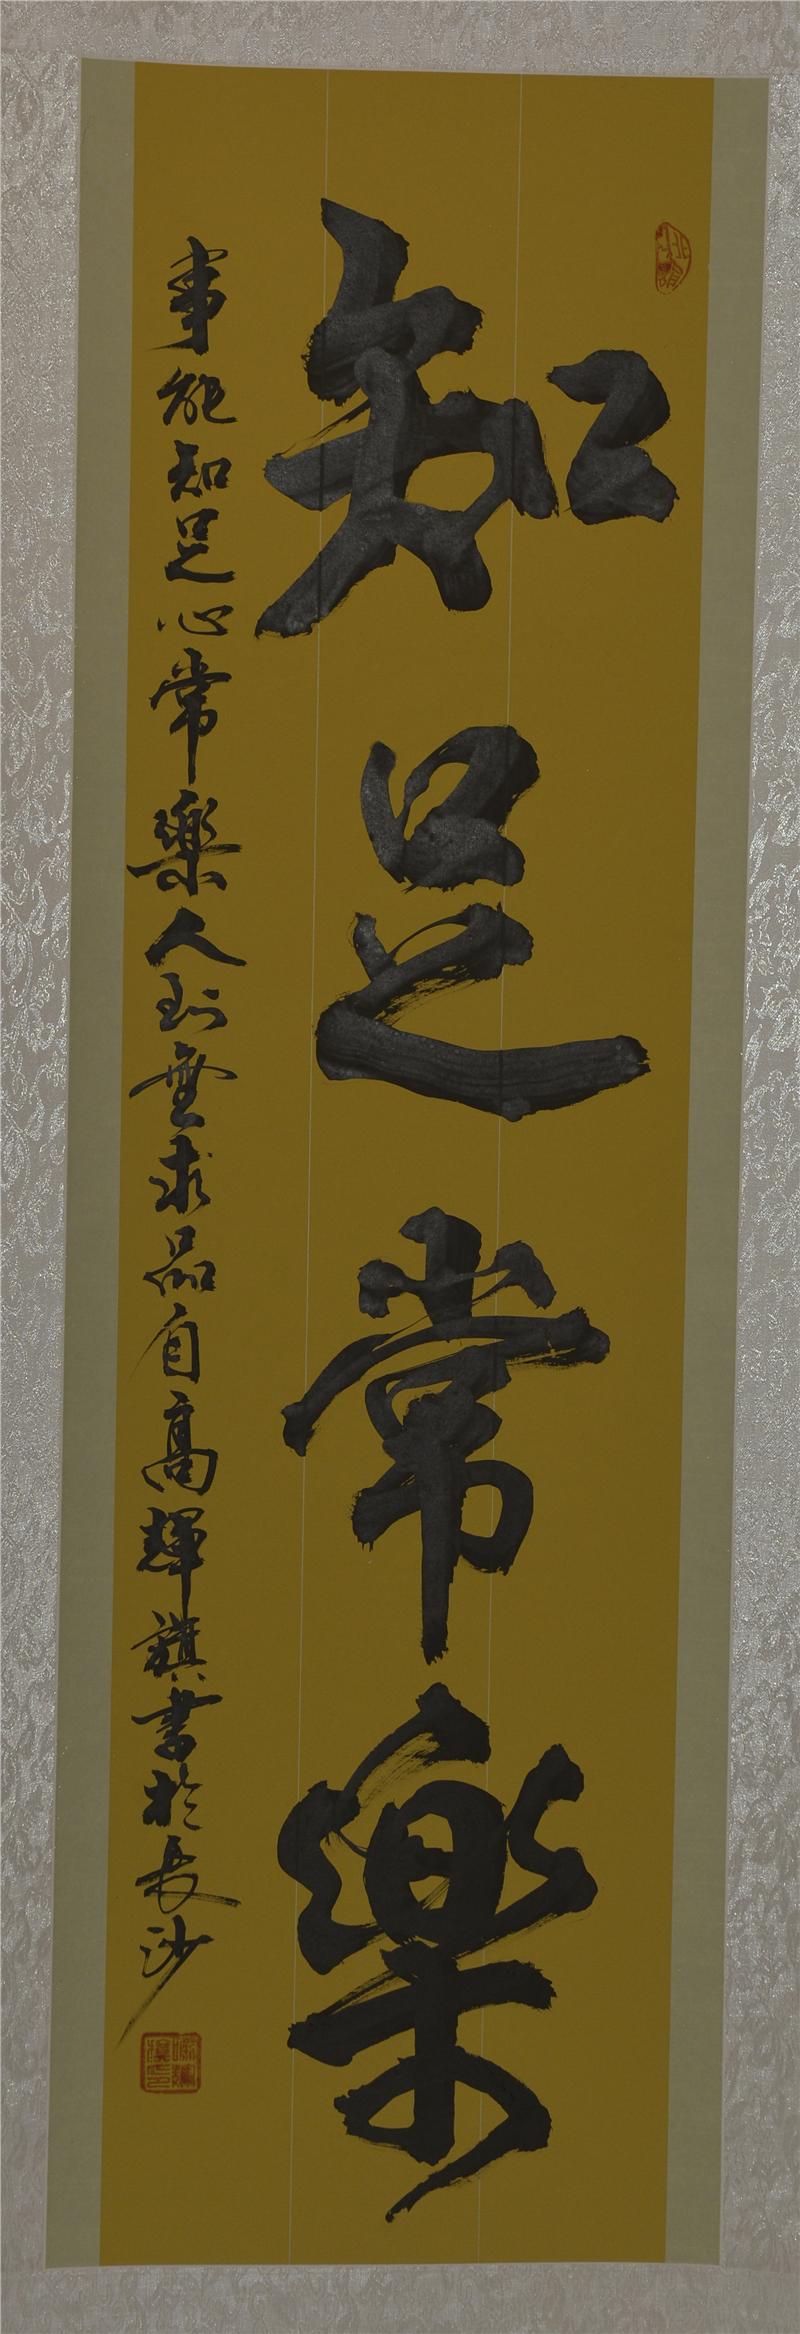 知足常樂
事能知足心常樂人到無求品自高輝旗書於長沙